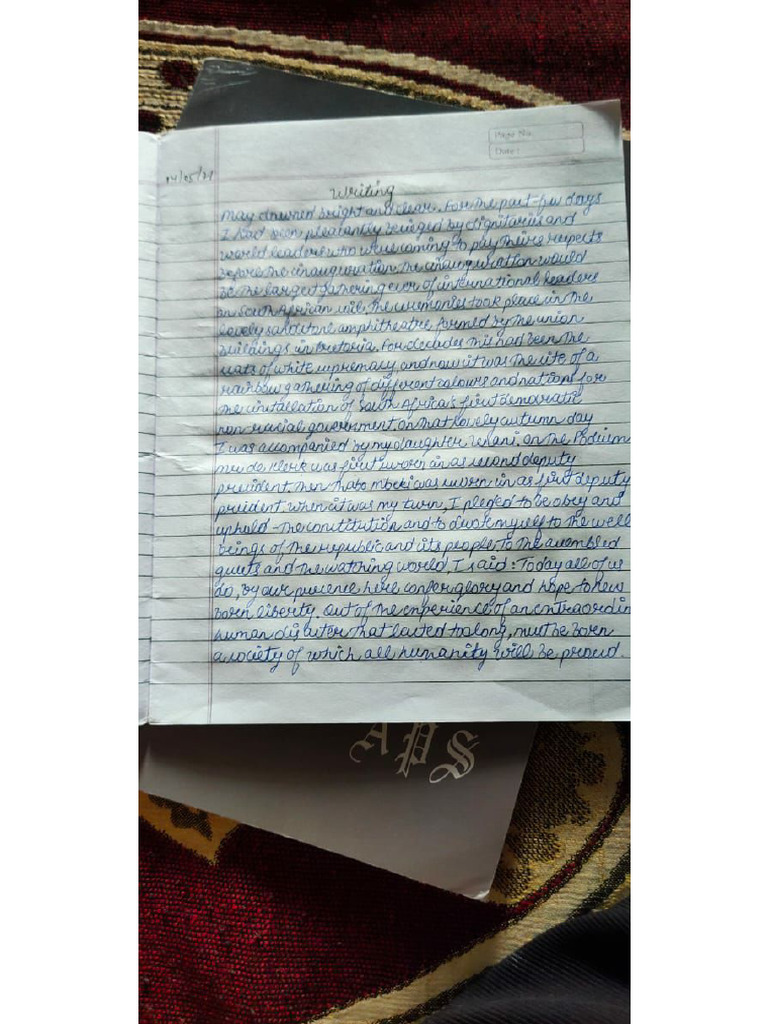 Page No.
Date:
04/05/21
Writing
May dawned bright and clear. For the past few days
I had been pleasantly besieged by dignitaries and
world leaders who were coming to pay their respects
before the inauguration. The inauguration would
be the largest gathering ever of international leaders
on South African soil. The ceremonies took place in the
lovely sandstone amphitheatre formed by the union
buildings in Pretoria. For decades this had been the
seats of white supremacy, and now it was the site of a
rainbow gathering of different colours and nations for
the installation of South Africa's first democratic
non-racial government. On that lovely autumn day
I was accompanied by my daughter Zenani. On the Podium
Mr de Klerk was first sworn in as second deputy
president. Then Thabo Mbeki was sworn in as first deputy
president. When it was my turn, I pledged to be obey and
uphold the constitution and to devote myself to the well
beings of the republic and its people. To the assembled
guests and the watching world, I said: Today all of us
do, by our presence here confer glory and hope to new
born liberty. Out of the experience of an extraordin
human disaster that lasted too long, must be born
a society of which all humanity will be proud.
APS